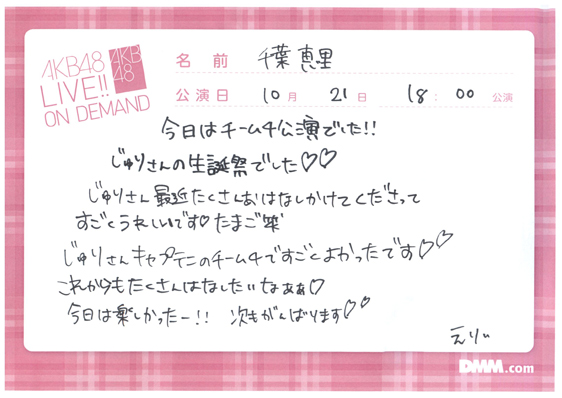 AKB48
LIVE!!
ON DEMAND
AKB
48
名前 千葉恵里
公演日 10月 21日 18:00 公演
今日はチーム4公演でした!!
じゅりさんの生誕祭でした♡♡
じゅりさん最近たくさんおはなしかけてくださって
すごくうれしいです♡たまご笑
じゅりさんキャプテンのチーム4ですごくよかったです♡♡
これからもたくさんはなしたいなぁぁ♡
今日は楽しかったー!! 次もがんばります♡♡
えりい
DMM.com